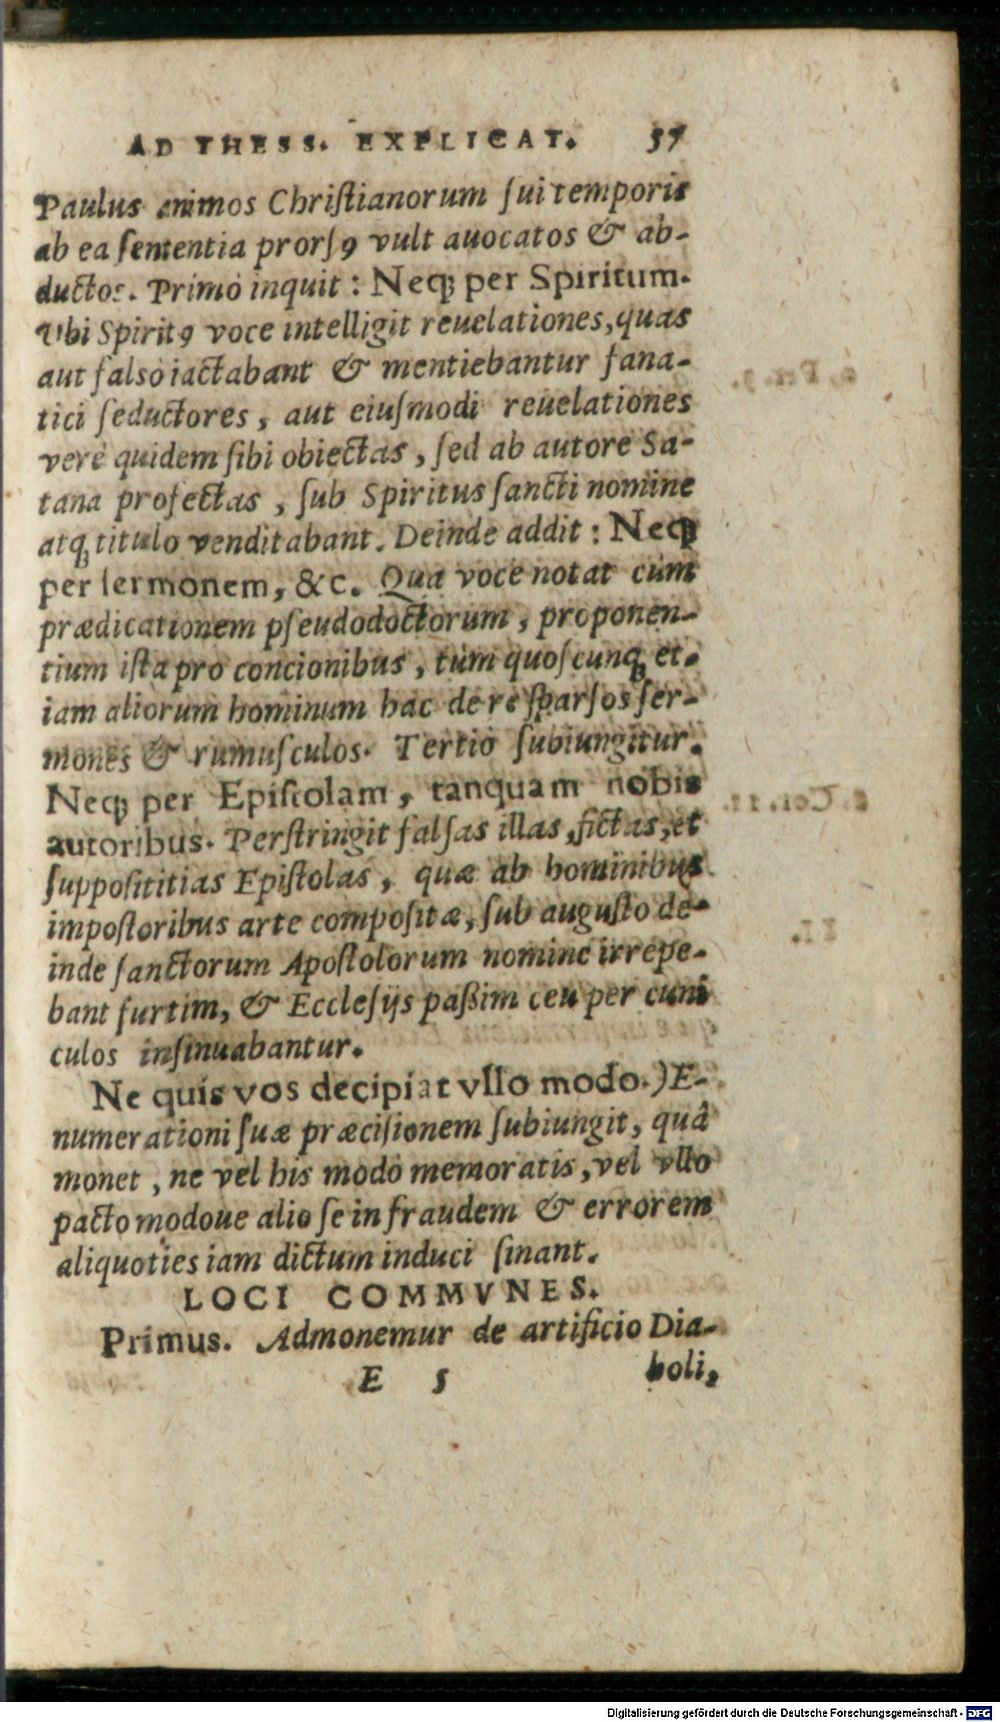 AD THESS. EXPLICAT. 57
Paulus animos Chriſtianorum ſui temporis
ab ea ſententia prorſꝰ vult auocatos & ab-
ductos. Primò inquit: Neqꝫ per Spiritum.
Vbi Spiritꝰ voce intelligit reuelationes, quas
aut falsò iactabant & mentiebantur fana-
tici ſeductores, aut eiuſmodi reuelationes
verè quidem ſibi obiectas, ſed ab autore Sa-
tana profectas, ſub Spiritus ſancti nomine
atqꝫ titulo venditabant. Deinde addit: Neqꝫ
per ſermonem, &c. Qua voce notat cùm
prædicationem pſeudodoctorum, proponen-
tium iſta pro concionibus, tùm quoſcunqꝫ et-
iam aliorum hominum hac de re ſparſos ſer-
mones & rumuſculos. Tertiò ſubiungitur.
Neqꝫ per Epiſtolam, tanquam nobis
autoribus. Perſtringit falſas illas, fictas, et
ſuppoſititias Epiſtolas, quæ ab hominibus
impoſtoribus arte compoſitæ, ſub auguſto de-
inde ſanctorum Apoſtolorum nomine irrepe-
bant furtim, & Eccleſijs paßim ceu per cuni
culos inſinuabantur.
Ne quis vos decipiat vllo modo.) E-
numerationi ſuæ præciſionem ſubiungit, quâ
monet, ne vel his modò memoratis, vel vllo
pacto modoue alio ſe in fraudem & errorem
aliquoties iam dictum induci ſinant.
LOCI COMMVNES.
Primus. Admonemur de artificio Dia-
E 5 boli,
Digitalisierung gefördert durch die Deutsche Forschungsgemeinschaft - DFG